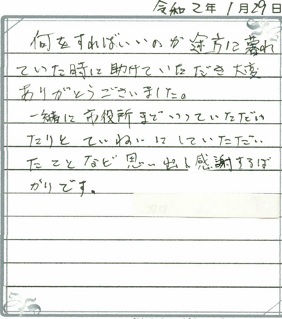 令和2年1月29日
何をすればいいのか途方に暮れ
ていた時に助けていただき大変
ありがとうございました。
一緒に市役所まで いっていただい
たりと ていねいにしていただい
たことなど思い出し感謝するば
かりです。